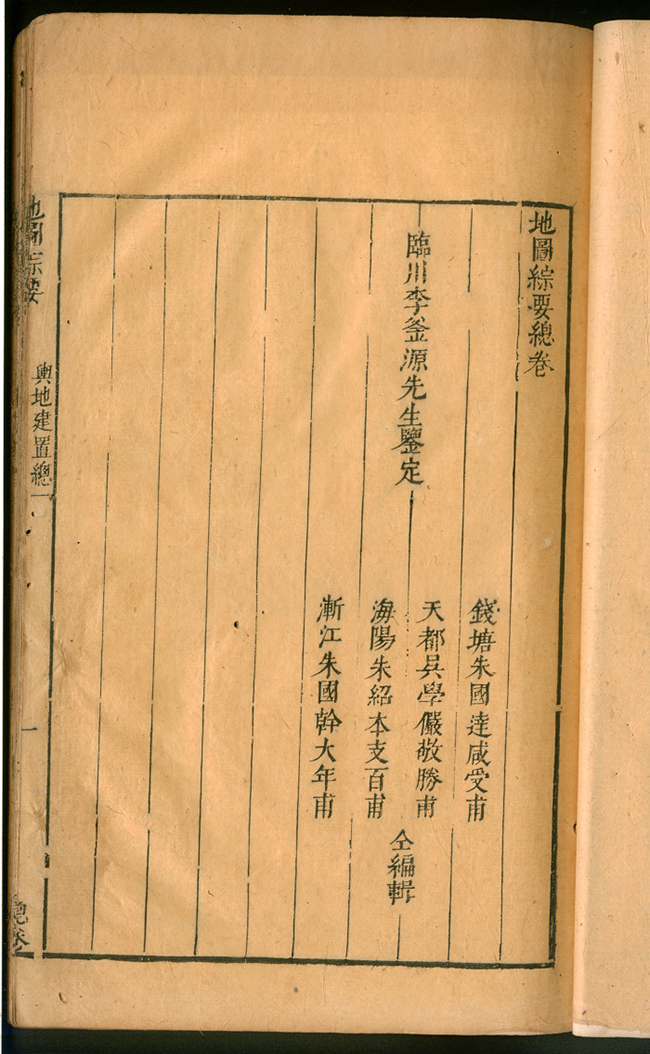 地圖綜要總卷
臨川李釜源先生鑒定
錢塘朱國達咸受甫
天都吳學儼敬勝甫
海陽朱紹本支百甫
漸江朱國幹大年甫
仝編輯
地圖綜要
輿地建置總一
一
總卷